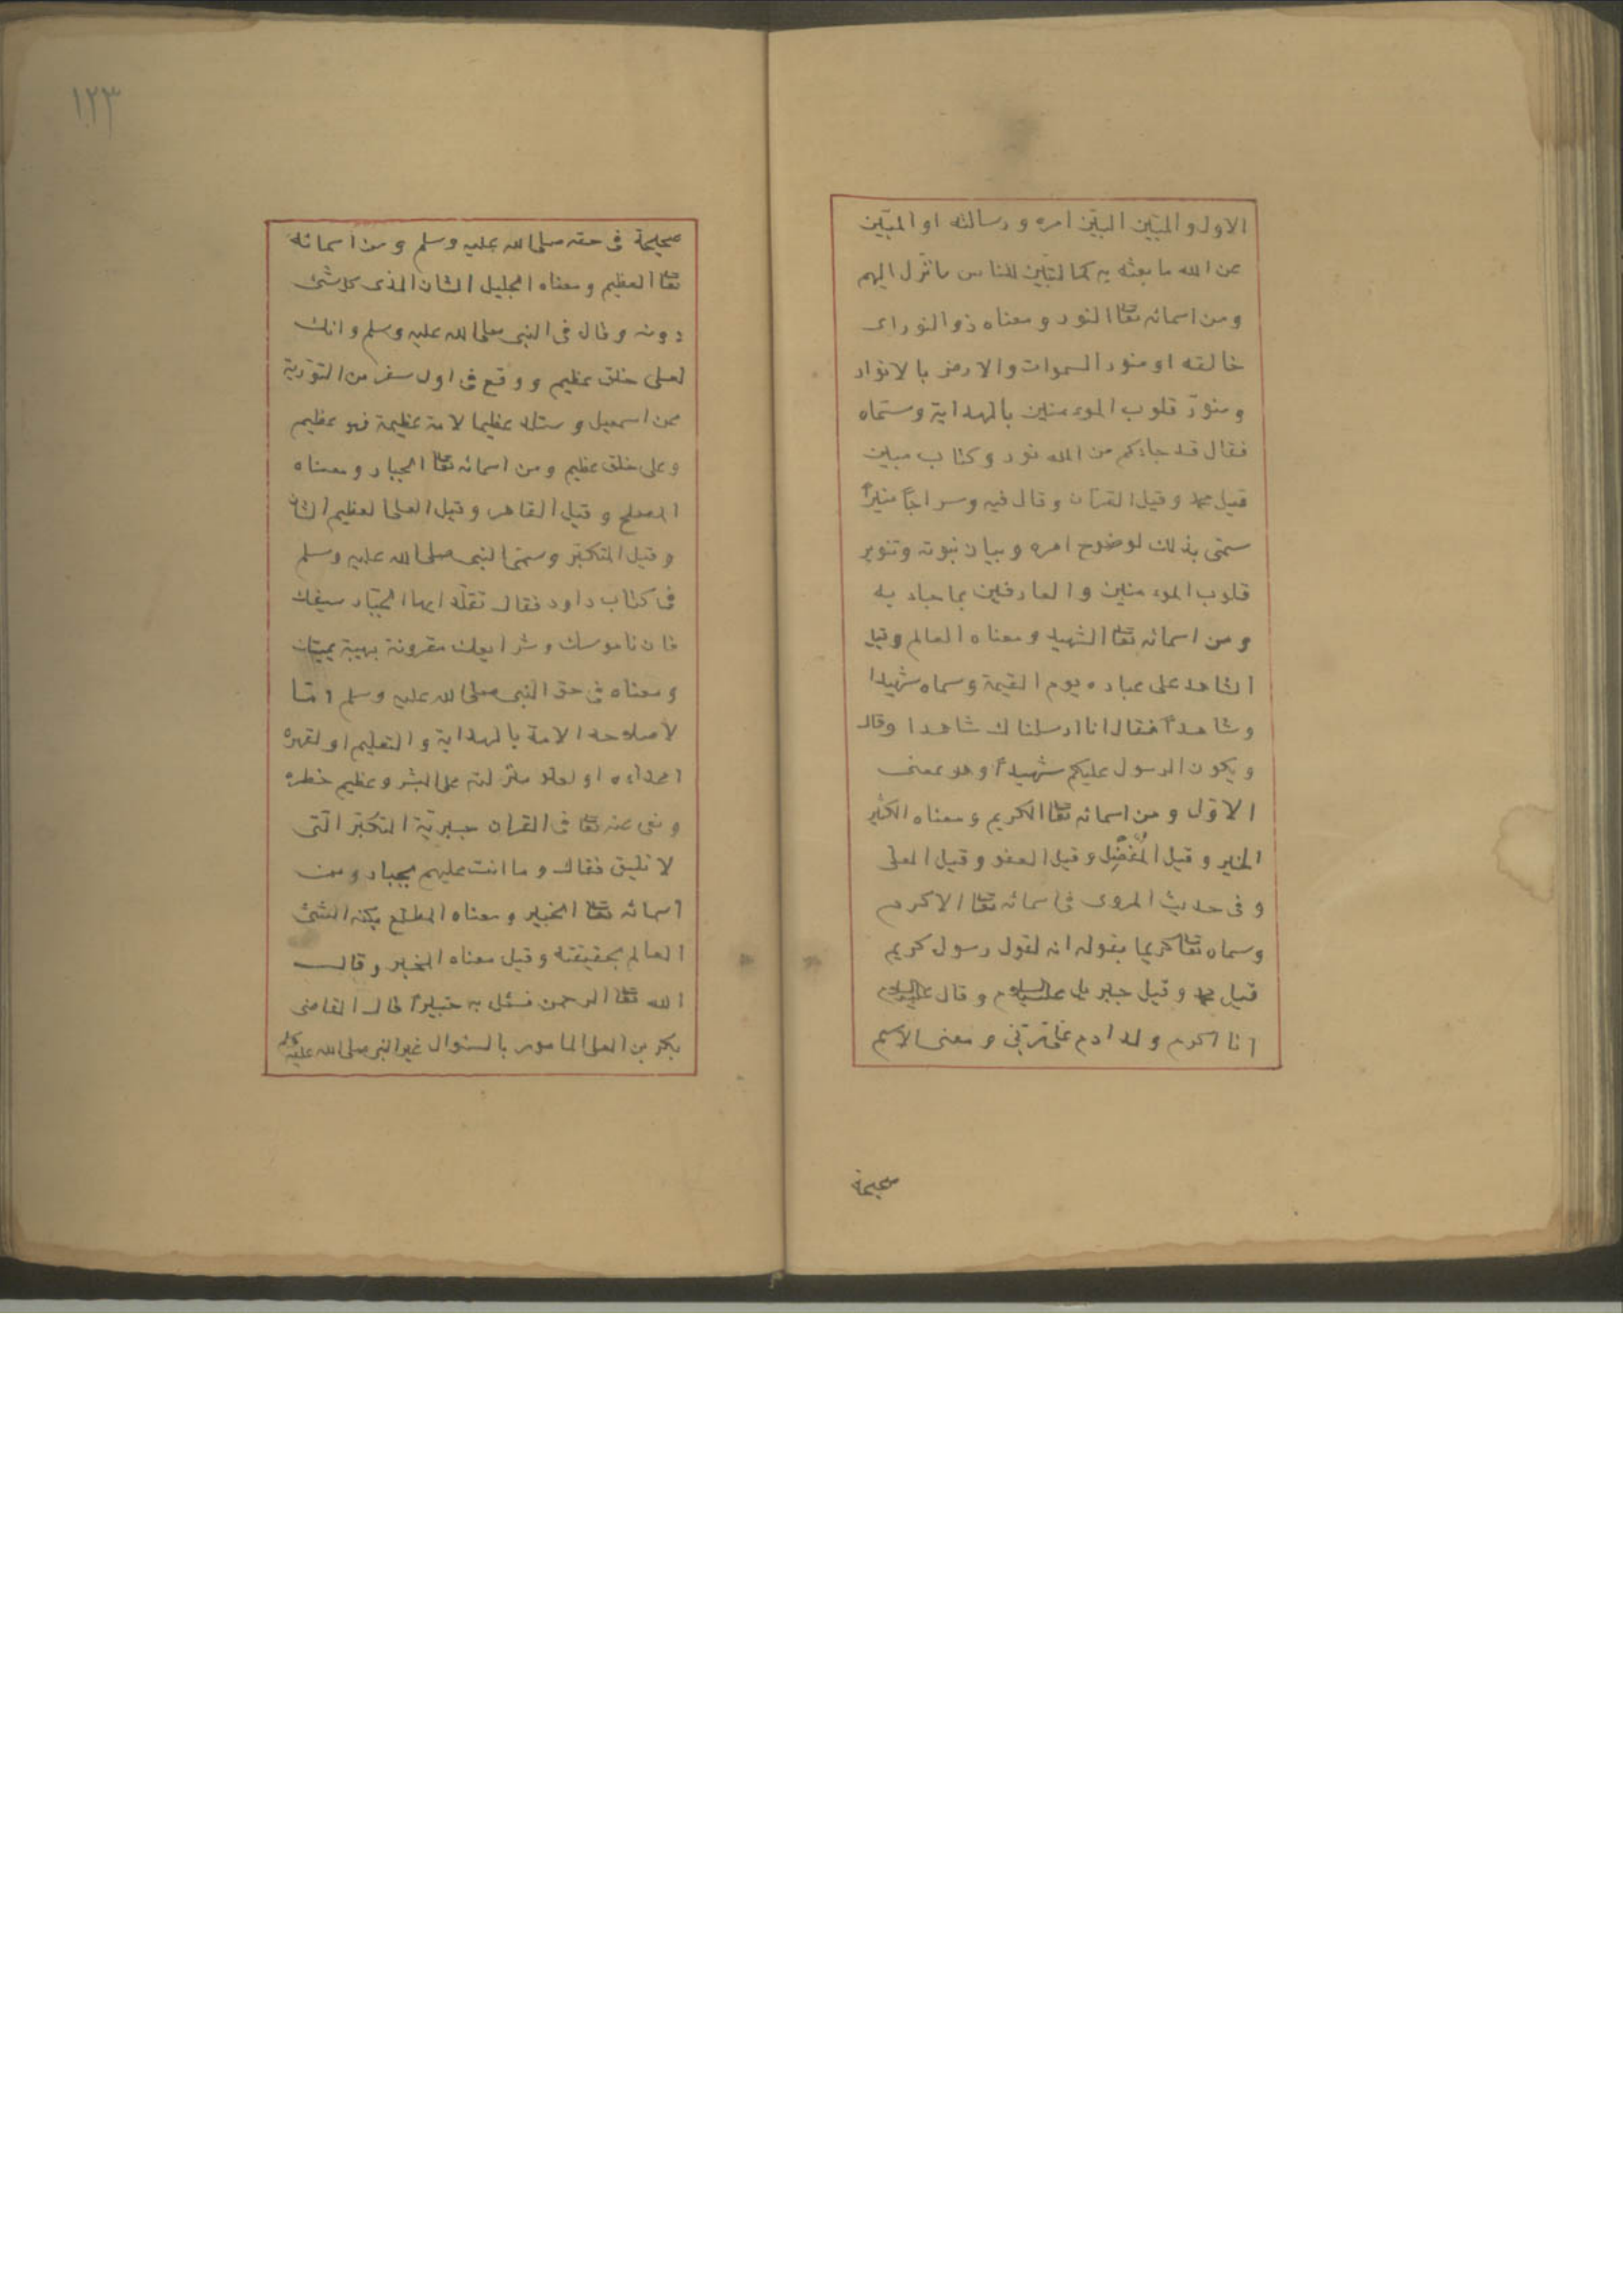 الاول والمبين البيّن امره ورسالته او المبيّن
عن الله ما بعثه به كما لتبيّن للناس ما نزل اليهم
ومن اسمائه تعا النور ومعناه ذو النور اى
خالقه او منور السموات والارض بالانوار
ومنوّر قلوب المومنين بالهداية وسمّاه
فقال قد جاءكم من الله نور وكتاب مبين
قيل محمد وقيل القرآن وقال فيه وسراجاً منيراً
سمّى بذلك لوضوح امره وبيان نبوته وتنوير
قلوب المومنين والعارفين بما جاء به
ومن اسمائه تعا الشهيد ومعناه العالم وقيل
الشاهد على عباده يوم القيمة وسماه شهيدا
وشاهداً فقال انا ارسلناك شاهدا وقال
ويكون الرسول عليكم شهيداً وهو بمعنى
الاوّل ومن اسمائه تعا الكريم ومعناه الكثير
الخير وقيل المُفْضِل وقيل العفو وقيل العلى
وفى حديث المروى فى اسمائه تعا الاكرم
وسماه تعا كريما بقوله انه لقول رسول كريم
قيل محمد وقيل جبريل عليه السلام وقال عليه السلام
انا اكرم ولد ادم على ربى ومعنى الاسم
صحيحة
١٢٣
صحيحة فى حقه صلى الله عليه وسلم ومن اسمائه
تعا العظيم ومعناه الجليل الشان الذى كل شئ
دونه وقال فى النبى صلى الله عليه وسلم وانك
لعلى خلق عظيم ووقع فى اول سفر من التورية
عن اسمعيل وستلد عظيما لامة عظيمة فهو عظيم
وعلى خلق عظيم ومن اسمائه تعا الجبار ومعناه
المصلح وقيل القاهر وقيل العلى العظيم الشان
وقيل المتكبّر وسمّى النبى صلى الله عليه وسلم
فى كتاب داود فقال تقلّد ايها الجبّار سيفك
فان ناموسك وشرايعك مقرونة بهيبة يمينك
ومعناه فى حق النبى صلى الله عليه وسلم امّا
لاصلاحه الامة بالهداية والتعليم او لقهره
اعداءه او لعلو منزلته على البشر وعظيم خطره
ونفى عنه تعا فى القران جبريّة التكبّر الّتى
لا تليق فقال وما انت عليهم بجبار ومن
اسمائه تعا الخبير ومعناه المطلع بكنه الشئ
العالم بحقيقته وقيل معناه المخبر وقال
الله تعا الرحمن فسئل به خبيراً قال القاضى
بكر بن العلى المامور بالسئوال غير النبى صلى الله عليه وسلم